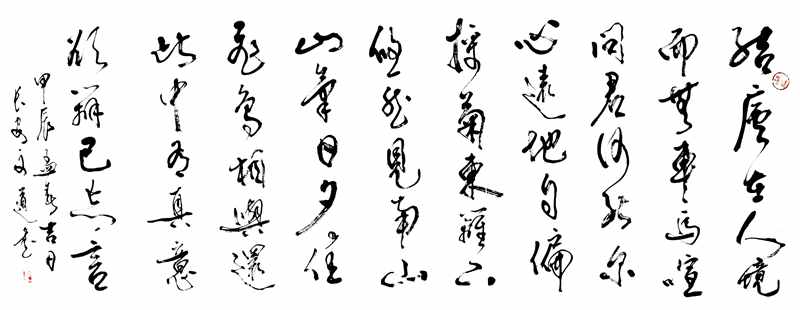 結廬在人境
而無車馬喧
問君何能爾
心遠地自偏
採菊東籬下
悠然見南山
山氣日夕佳
飛鳥相與還
此中有真意
欲辯已忘言
甲辰孟春吉日
長安文道書